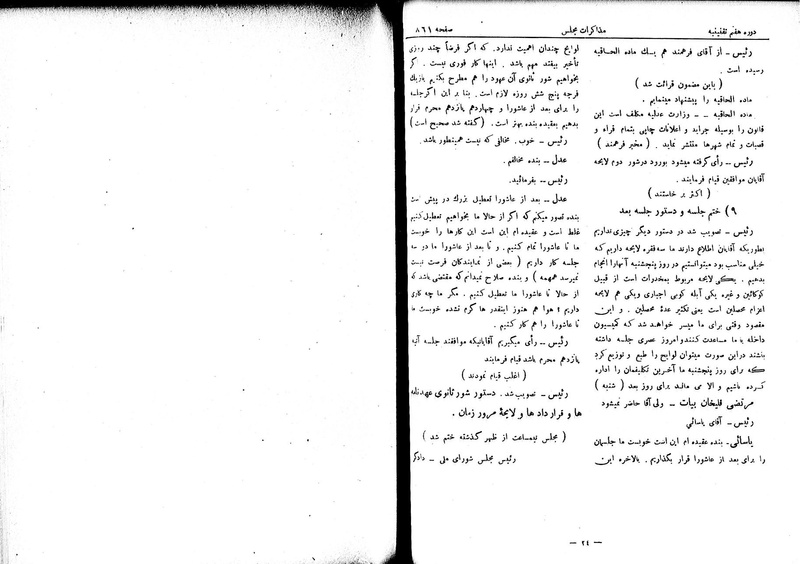 دوره هفتم تقنینیه
مذاکرات مجلس
صفحه ۸۶۱
رئیس ـ از آقای فرهمند هم یک ماده الحاقیه
رسیده است .
( باین مضمون قرائت شد )
ماده الحاقیه را پیشنهاد مینمایم .
ماده الحاقیه ـ ـ وزارت عدلیه مکلف است این
قانون را بوسیله جراید و اعلانات چاپی بتمام قراء و
قصبات و تمام شهرها منتشر نماید . ( مخبر فرهمند )
رئیس ـ رأی گرفته میشود بورود درشور دوم لایحه
آقایان موافقین قیام فرمایند .
( اکثر بر خاستند )
۹) ختم جلسه و دستور جلسه بعد
رئیس ـ تصویب شد در دستور دیگر چیزی نداریم
بطوریکه آقایان اطلاع دارند ما سه فقره لایحه داریم که
خیلی مناسب بود میتوانستیم در روز پنجشنبه آنهارا انجام
بدهیم . یکی لایحه مربوط بمخدرات است از قبیل
کوکائین و غیره یکی آبله کوبی اجباری ویکی هم لایحه
اعزام محصلین است یعنی تکثیر عدهٔ محصلین . و این
مقصود وقتی برای ما میسر خواهد شد که کمیسیون
داخله با ما مساعدت کنند و امروز عصری جلسه داشته
باشند دراین صورت میتوان لوایح را طبع و توزیع کرد
که برای روز پنجشنبه ما آخرین تکلیفمان را اداره
کرده باشیم و الا می ماند برای روز بعد ( شنبه )
مرتضی قلیخان بیات ـ ولی آقا حاضر نمیشود
رئیس ـ آقای یاسائی
یاسائی ـ بنده عقیده ام این است خوبست ما جلسهمان
را برای بعد از عاشورا قرار بگذاریم . بالاخره این
لوایح چندان اهمیت ندارد . که اگر فرضاً چند روزی
تأخیر بیفتد مهم باشد . اینها کار فوری نیست . گر
بخواهیم شور ثانوی آن عهود را هم مطرح بکنیم بازیک
فرجه پنج شش روزه لازم است . بنا بر این اگر جلسه
را برای بعد از عاشورا و چهاردهم یازدهم محرم قرار
بدهیم بعقیده بنده بهتر است . (گفته شد صحیح است)
رئیس ـ خوب . مخالفی که نیست همینطور باشد .
عدل ـ بنده مخالفم .
رئیس ـ بفرمائید .
عدل ـ بعد از عاشورا تعطیل بزرك در پیش است
بنده تصور میکنم که اگر از حالا ما بخواهیم تعطیل کنیم
غلط است و عقیده ام این است این کارها را خوبست
ما تا عاشورا تمام کنیم . و تا بعد از عاشورا ما در سه
جلسه کار داریم ( بعضی از نمایندگان فرصت نیست
نمیرسد همهمه ) و بنده صلاح نمیدانم که مقتضی باشد که
از حالا تا عاشورا ما تعطیل کنیم . مگر ما چه کاری
داریم ؟ هوا هم هنوز اینقدر ها گرم نشده خوبست ما
تا عاشورا را هم کار کنیم .
رئیس ـ رأی میگیریم آقایانیکه موافقند جلسه آتیه
یازدهم محرم باشد قیام فرمایند
( اغلب قیام نمودند )
رئیس ـ تصویب شد . دستور شور ثانوی عهدنامه
ها و قرار داد ها و لایحهٔ مرور زمان .
( مجلس نیمساعت از ظهر گذشته ختم شد )
رئیس مجلس شورای ملی ـ دادگر
— ۲٤ —